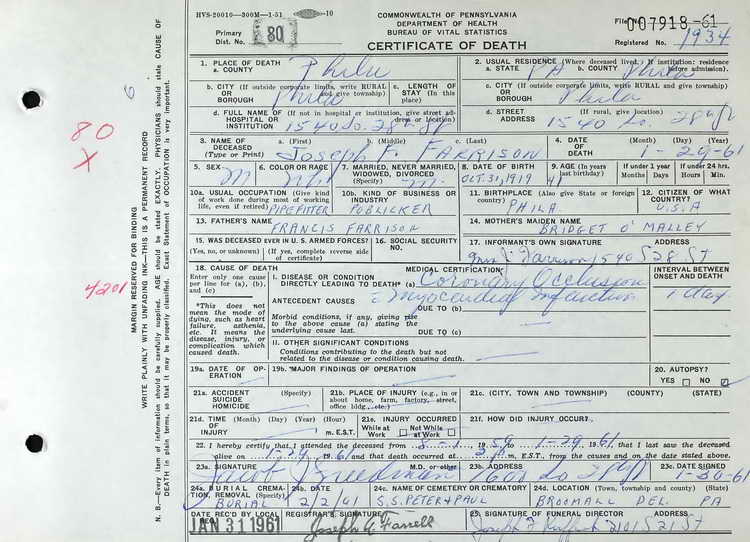 HVS-20010—300M—1-51 10
COMMONWEALTH OF PENNSYLVANIA
DEPARTMENT OF HEALTH
BUREAU OF VITAL STATISTICS
CERTIFICATE OF DEATH
Primary Dist. No. 80
File No. 007918-61
Registered No. 1934
1. PLACE OF DEATH
a. COUNTY Phila
2. USUAL RESIDENCE (Where deceased lived. If institution: residence before admission).
a. STATE PA b. COUNTY Phila
b. CITY (If outside corporate limits, write RURAL and give township) OR BOROUGH Phila
c. LENGTH OF STAY (in this place)
c. CITY (If outside corporate limits, write RURAL and give township) OR BOROUGH Phila
d. FULL NAME OF (If not in hospital or institution, give street address or location) HOSPITAL OR INSTITUTION 1540 So. 28th St
d. STREET ADDRESS (If rural, give location) 1540 So. 28th St
3. NAME OF DECEASED (Type or Print) a. (First) b. (Middle) c. (Last)
Joseph F. FARRISON
4. DATE OF DEATH (Month) (Day) (Year)
1-29-61
5. SEX M
6. COLOR OR RACE Wh
7. MARRIED, NEVER MARRIED, WIDOWED, DIVORCED (Specify) M.
8. DATE OF BIRTH OCT. 31, 1919
9. AGE (In years last birthday) 41
If under 1 year Months Days
If under 24 hrs. Hours Min.
10a. USUAL OCCUPATION (Give kind of work done during most of working life, even if retired) PIPEFITTER
10b. KIND OF BUSINESS OR INDUSTRY PUBLICKER
11. BIRTHPLACE (Also give State or foreign country) PHILA.
12. CITIZEN OF WHAT COUNTRY? U.S.A
13. FATHER'S NAME
FRANCIS FARRISON
14. MOTHER'S MAIDEN NAME
BRIDGET O'MALLEY
15. WAS DECEASED EVER IN U. S. ARMED FORCES?
(Yes, no, or unknown) (If yes, complete reverse side of certificate)
16. SOCIAL SECURITY NO.
17. INFORMANT'S OWN SIGNATURE ADDRESS
Farrison 1540 S 28 St
18. CAUSE OF DEATH
Enter only one cause per line for (a), (b), and (c)
MEDICAL CERTIFICATION
INTERVAL BETWEEN ONSET AND DEATH
I. DISEASE OR CONDITION DIRECTLY LEADING TO DEATH* (a) Coronary Occlusion
ANTECEDENT CAUSES
Myocardial Infarction 1 day
DUE TO (b)
*This does not mean the mode of dying, such as heart failure, asthenia, etc. It means the disease, injury, or complication which caused death.
Morbid conditions, if any, giving rise to the above cause (a) stating the underlying cause last.
DUE TO (c)
II. OTHER SIGNIFICANT CONDITIONS
Conditions contributing to the death but not related to the disease or condition causing death.
19a. DATE OF OPERATION
19b. MAJOR FINDINGS OF OPERATION
20. AUTOPSY?
YES NO
21a. ACCIDENT SUICIDE HOMICIDE (Specify)
21b. PLACE OF INJURY (e.g., in or about home, farm, factory, street, office bldg., etc.)
21c. (CITY, TOWN AND TOWNSHIP) (COUNTY) (STATE)
21d. TIME OF INJURY (Month) (Day) (Year) (Hour) m. E.S.T.
21e. INJURY OCCURRED While at Work Not While at Work
21f. HOW DID INJURY OCCUR?
22. I hereby certify that I attended the deceased from 8-1, 1959, to 1-29, 1961, that I last saw the deceased
alive on 1-29, 1961 and that death occurred at m., E.S.T., from the causes and on the date stated above.
23a. SIGNATURE M.D. or other
Freedman
23b. ADDRESS
1601 So 28 St
23c. DATE SIGNED
1-30-61
24a. BURIAL, CREMATION, REMOVAL (Specify) BURIAL
24b. DATE 2/2/61
24c. NAME OF CEMETERY OR CREMATORY
S.S. PETER & PAUL
24d. LOCATION (Town, township and county) (State)
BROOMALL DEL. PA
DATE REC'D BY LOCAL REG. JAN 31 1961
REGISTRAR'S SIGNATURE
Joseph A. Farrell
25. SIGNATURE OF FUNERAL DIRECTOR ADDRESS
Joseph F 2101 S 21 St
80
X
4201
6
MARGIN RESERVED FOR BINDING
WRITE PLAINLY WITH UNFADING INK—THIS IS A PERMANENT RECORD
N. B.—Every item of information should be carefully supplied. AGE should be stated EXACTLY. PHYSICIANS should state CAUSE OF
DEATH in plain terms, so that it may be properly classified. Exact Statement of OCCUPATION is very important.